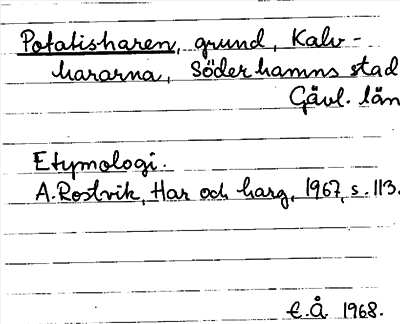 Potatisharen, grund, Kalv-
hararna, Söderhamns stad
Gävl. län
Etymologi.
A. Rostvik, Har och harg, 1967, s. 113.
E.Å. 1968.